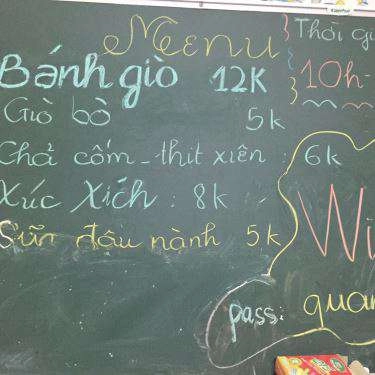 Menu
Bánh giò 12K
Giò bò 5k
Chả cốm - thịt xiên : 6k
Xúc Xích : 8k
Sữa đâu nành 5k
Thời
10h-
Wi
pass: